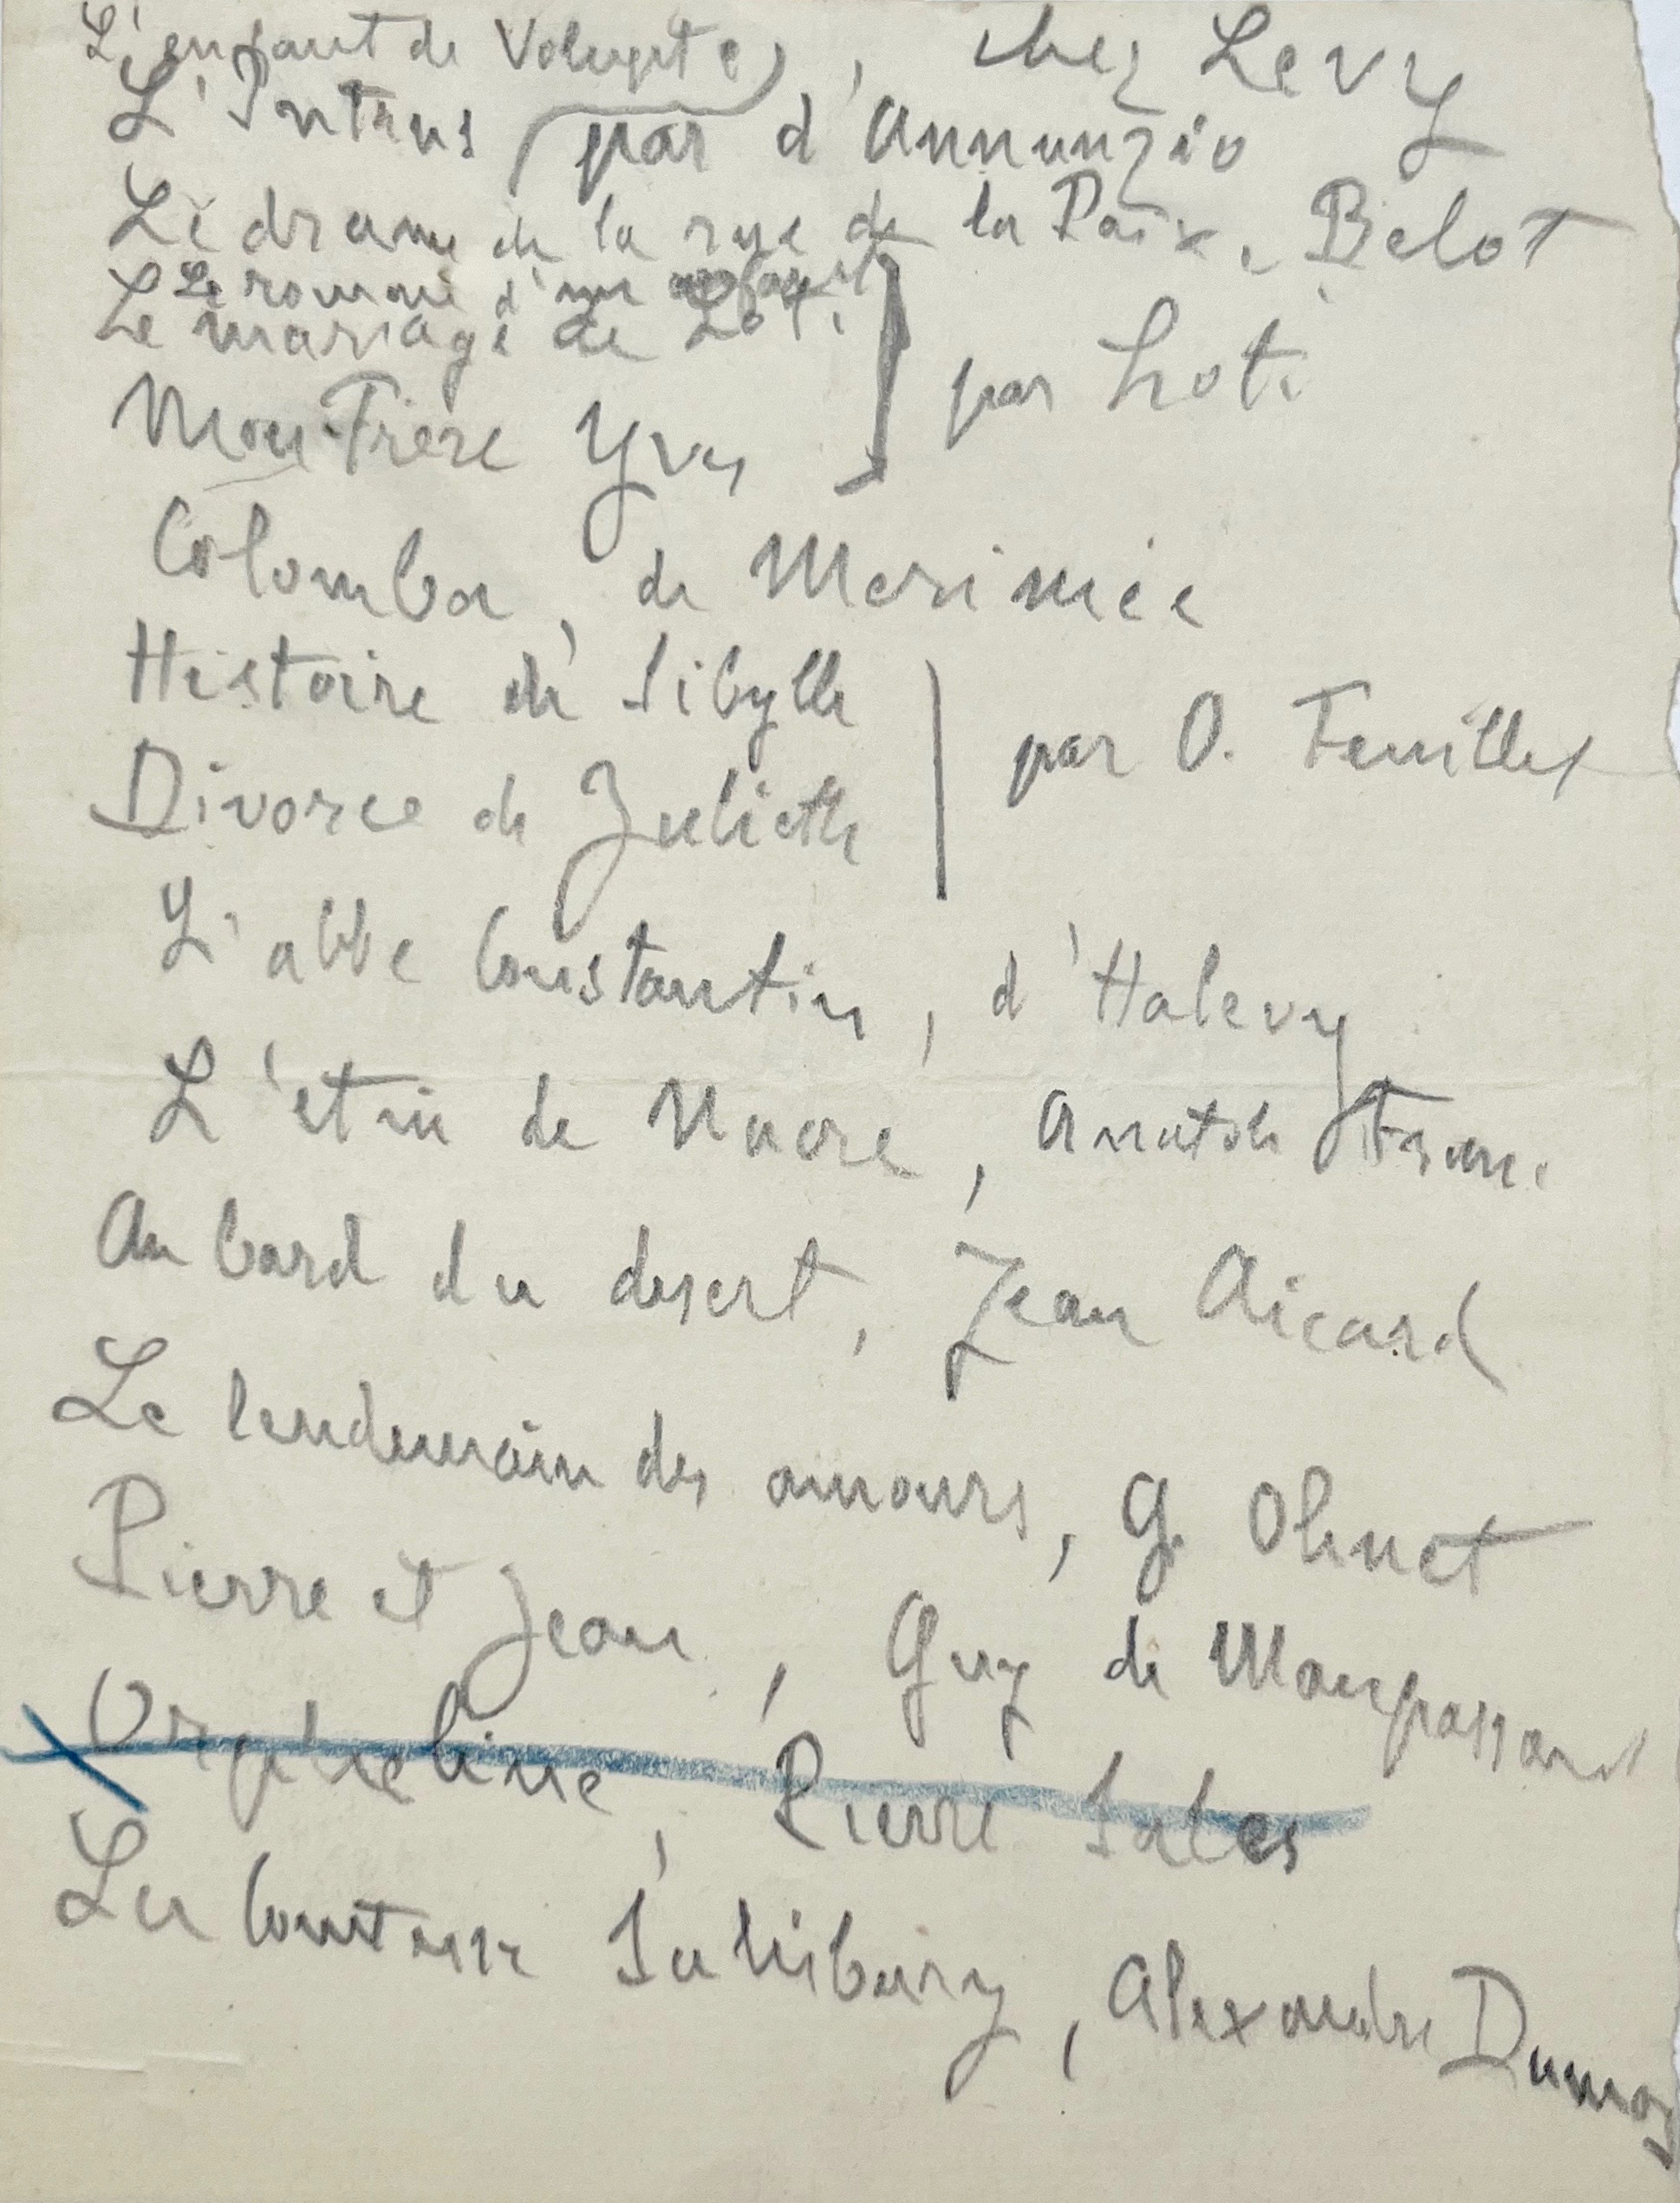 L'enfant de Volupté, chez Levy
L'Intrus par d'Annunzio
Le drame de la rue de la Paix, Belot
Le roman d'un enfant
Le mariage de Loti
par Loti
Mon Frère Yves
Colomba, de Merimée
Histoire de Sibylle
par O. Feuillet
Divorce de Juliette
L'abbe Constantin, d'Halevy
L'etui de Nacre, Anatole France
Au bord du desert, Jean Aicard
Le lendemain des amours, G. Ohnet
Pierre et Jean, Guy de Maupassant
Orpheline, Pierre Sales
La Comtesse Salisbury, Alexandre Dumas